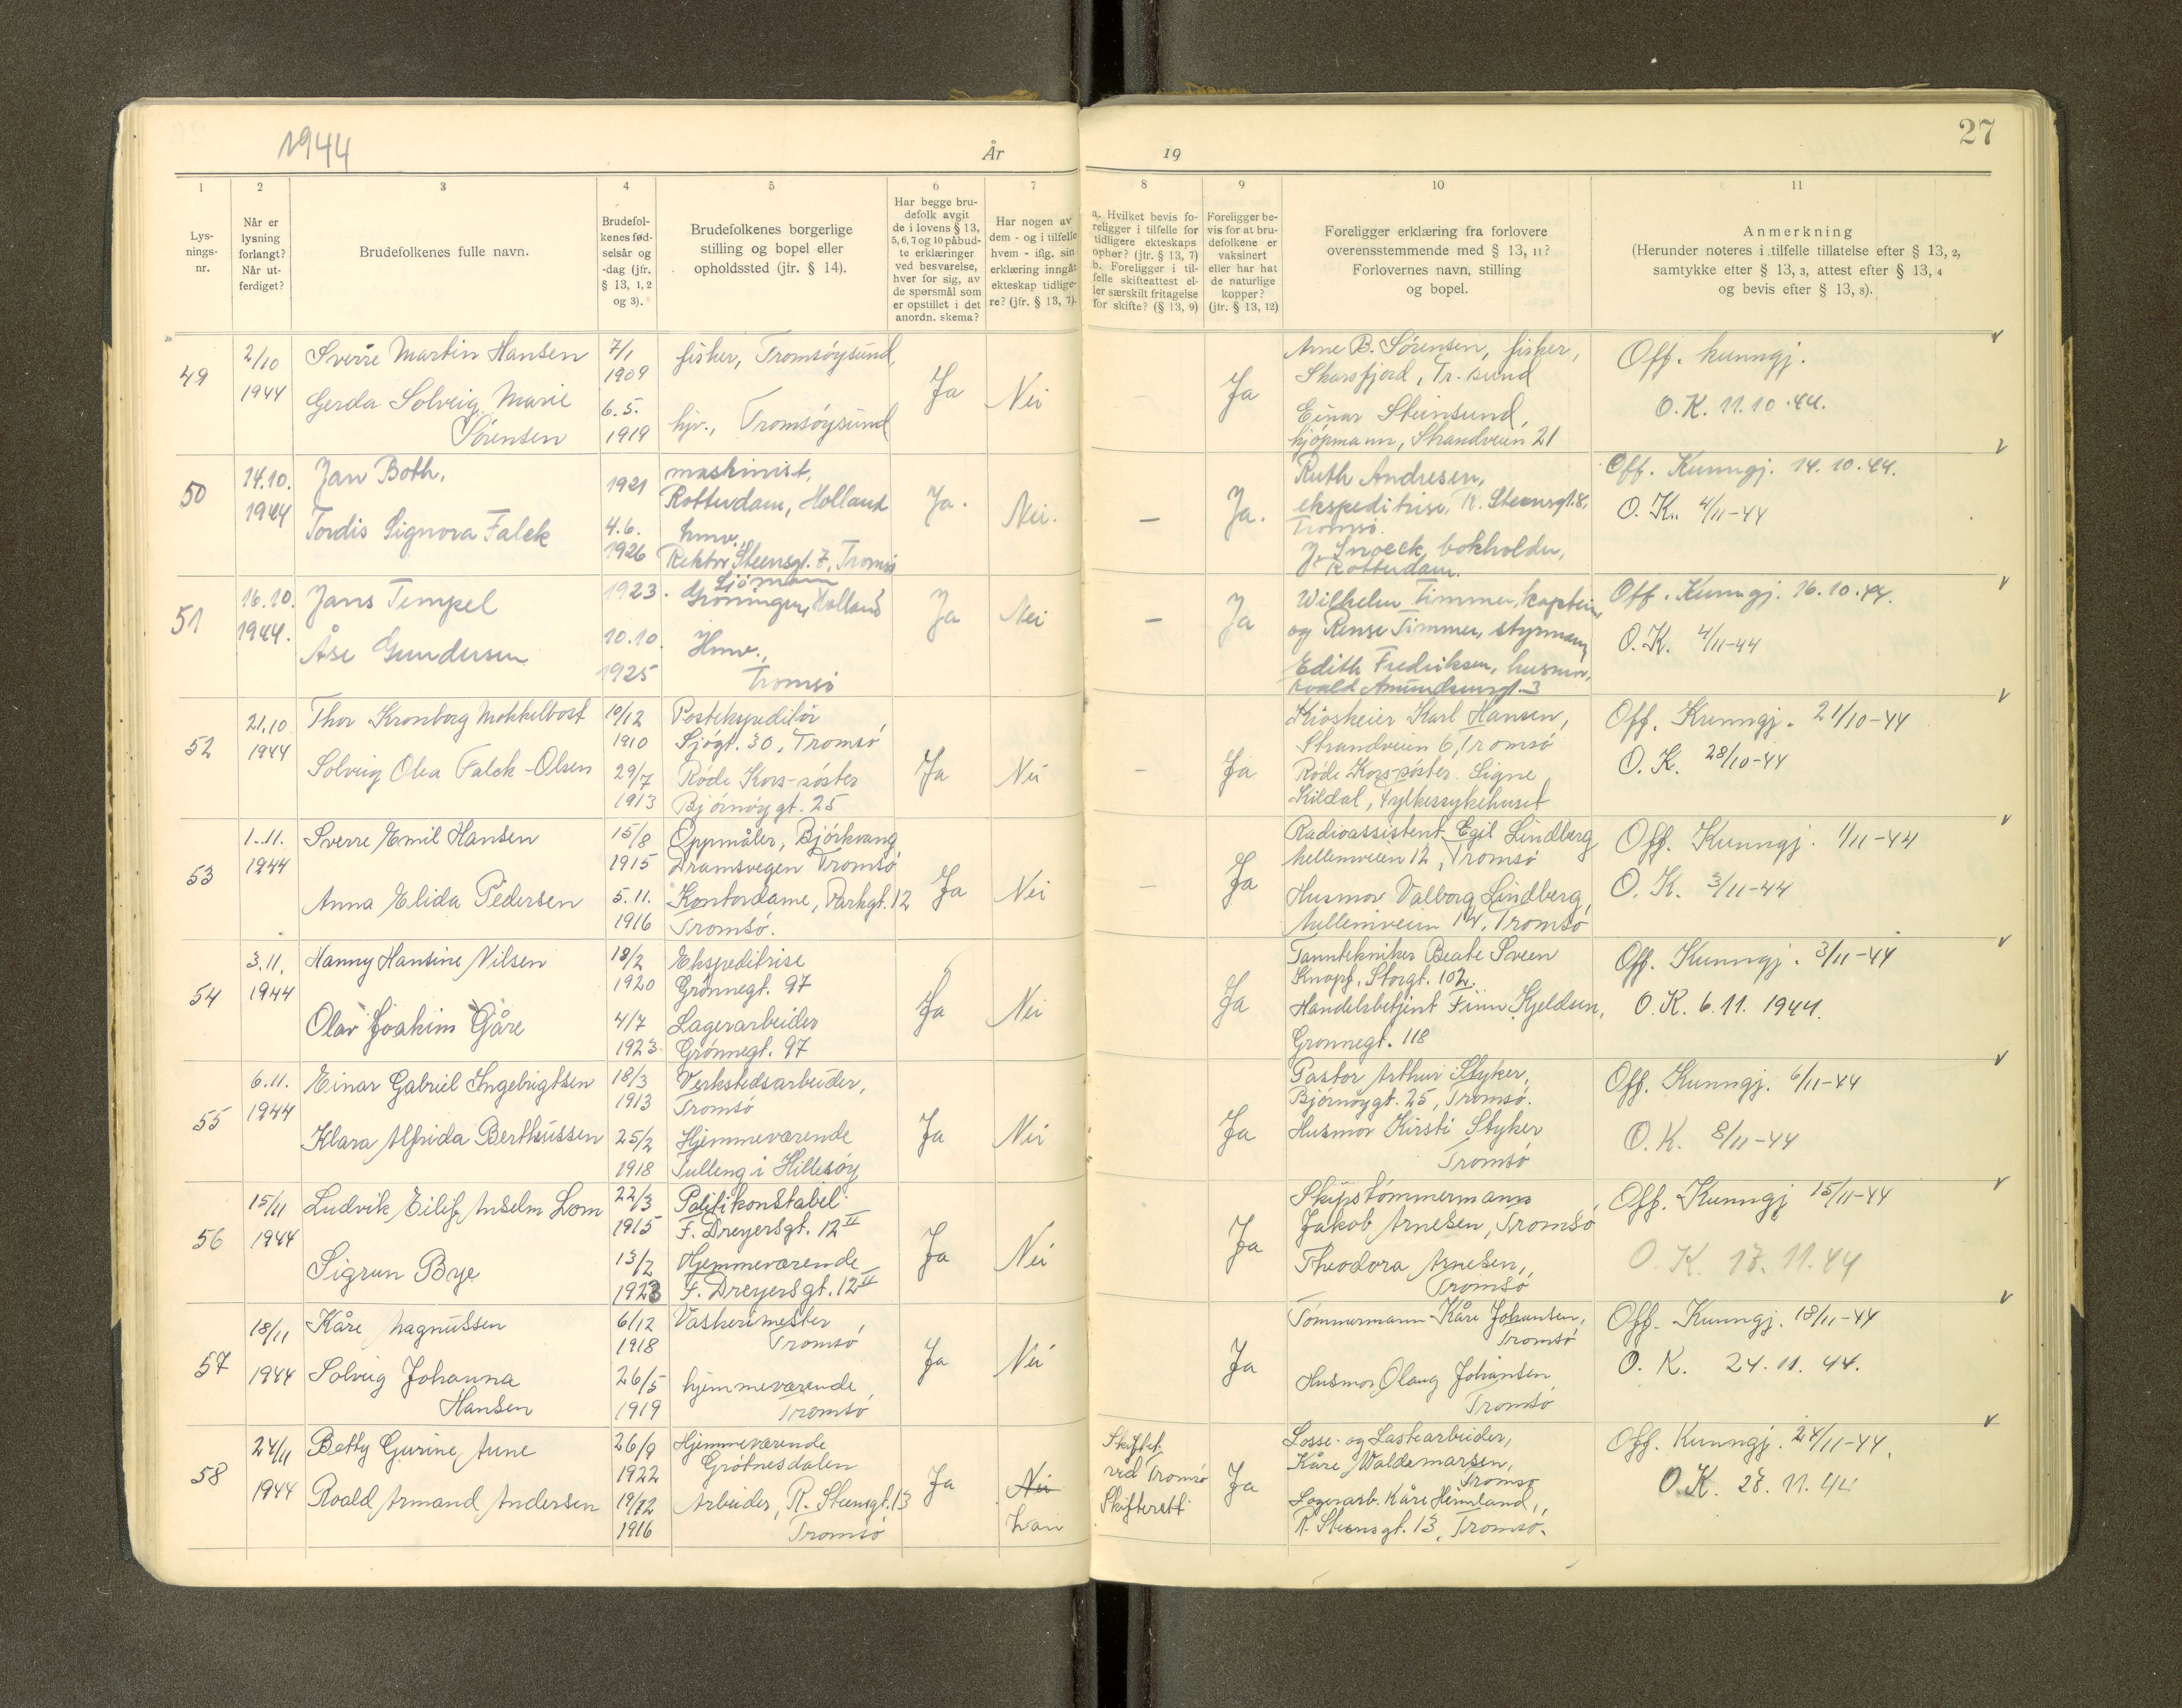 1944
År
19
27
1
2
3
4
5
6
7
8
9
10
11
Lys-
nings-
nr.
Når er
lysning
forlangt?
Når ut-
ferdiget?
Brudefolkenes fulle navn.
Brudefol-
kenes fød-
selsår og
-dag (jfr.
§ 13, 1, 2
og 3).
Brudefolkenes borgerlige
stilling og bopel eller
opholdssted (jfr. § 14).
Har begge bru-
defolk avgit
de i lovens § 13,
5, 6, 7 og 10 påbud-
te erklæringer
ved besvarelse,
hver for sig, av
de spørsmål som
er opstillet i det
anordn. skema?
Har nogen av
dem - og i tilfelle
hvem - iflg. sin
erklæring inngåt
ekteskap tidlige-
re? (jfr. § 13, 7).
a. Hvilket bevis fo-
religger i tilfelle for
tidligere ekteskaps
ophør? (jfr. § 13, 7)
b. Foreligger i til-
felle skifteattest el-
ler særskilt fritagelse
for skifte? (§ 13, 9)
Foreligger be-
vis for at bru-
defolkene er
vaksinert
eller har hat
de naturlige
kopper?
(jfr. § 13, 12)
Foreligger erklæring fra forlovere
overensstemmende med § 13, 11?
Forlovernes navn, stilling
og bopel.
Anmerkning
(Herunder noteres i tilfelle tillatelse efter § 13, 2,
samtykke efter § 13, 3, attest efter § 13, 4
og bevis efter § 13, 8).
49
2/10
1944
Sverre Martin Hansen
Gerda Solveig Marie
Sørensen
7/1
1909
6.5.
1919
fisker, Tromsøysund,
hjv., Tromsøysund
Ja
Nei
Ja
Arne B. Sørensen, fisker,
Skarsfjord, Tr.sund
Einar Steinsund,
kjøpmann, Strandveien 21
Off. kunngj.
O.K. 11.10.44.
50
14.10.
1944
Jan Both.
Tordis Signora Falck
1921
4.6.
1926
maskinist,
Rotterdam, Holland
hmv.,
Rektor Steensgt. 7, Tromsø
Ja.
Nei.
—
Ja.
Ruth Andresen,
ekspeditrise, R. Steensgt. 8,
Tromsø.
J. Snoeck, bokholder,
Rotterdam.
Off. Kunngj. 14.10.44.
O.K. 4/11-44
51
16.10.
1944.
Jans Tempel
Åse Gundersen
1923.
10.10.
1925
Sjømann
Groningen, Holland
Hmv.,
Tromsø
Ja
Nei
—
Ja
Wilhelm Timmer, kaptein,
og Rense Timmer, styrmann
Edith Fredriksen, husmor,
Roald Amundsensgt. 3
Off. Kunngj. 16.10.44.
O.K. 4/11-44
52
21.10
1944
Thor Kronborg Mokkelbost
Solveig Olea Falck-Olsen
10/12
1910
29/7
1913
Postekspeditør
Sjøgt. 30, Tromsø
Røde Kors-søster
Bjørnøygt. 25
Ja
Nei
—
Ja
Kioskeier Karl Hansen,
Strandveien 6, Tromsø
Røde Korssøster Signe
Kildal, Fylkessykehuset
Off. Kunngj. 21/10-44
O.K. 28/10-44
53
1.11.
1944
Sverre Emil Hansen
Anna Elida Pedersen
15/8
1915
5.11.
1916
Oppmåler, Bjørkvang
Dramsvegen Tromsø
Kontordame, Parkgt. 12
Tromsø.
Ja
Nei
—
Ja
Radioassistent Egil Lindberg
Mellemveien 12, Tromsø
Husmor Valborg Lindberg,
Mellemveien 12, Tromsø
Off. Kunngj. 1/11-44
O.K. 3/11-44
54
3.11.
1944
Hanny Hansine Nilsen
Olav Joakim Gåre
18/2
1920
4/7
1923
Ekspeditrise
Grønnegt. 97
Lagerarbeider
Grønnegt. 97
Ja
Nei
Ja
Tanntekniker Beate Sveen
Knopf, Storgt. 102
Handelsbetjent Finn Kjeldsen,
Grønnegt. 118
Off. Kunngj. 3/11-44
O.K. 6.11.1944.
55
6.11.
1944
Einar Gabriel Ingebrigtsen
Klara Alfrida Berthussen
18/3
1913
25/2
1918
Verkstedsarbeider,
Tromsø
Hjemmeværende
Tulleng i Hillesøy
Ja
Nei
Ja
Pastor Arthur Styker,
Bjørnøygt. 25, Tromsø.
Husmor Kirsti Styker
Tromsø
Off. Kunngj. 6/11-44
O.K. 8/11-44
56
15/11
1944
Ludvik Eilif Anselm Lom
Sigrun Bye
22/3
1915
13/2
1923
Politikonstabel
F. Dreyersgt. 12 II
Hjemmeværende
F. Dreyersgt. 12 II
Ja
Nei
Ja
Skipstømmermann
Jakob Arnesen, Tromsø
Theodora Arnesen,
Tromsø
Off. Kunngj 15/11-44
O.K. 17.11.44
57
18/11
1944
Kåre Magnussen
Solveig Johanna
Hansen
6/12
1918
26/5
1919
Vaskerimester,
Tromsø
hjemmeværende,
Tromsø
Ja
Nei
Ja
Tømmermann Kåre Johansen,
Tromsø
Husmor Olaug Johansen
Tromsø
Off. Kunngj. 18/11-44
O.K. 24.11.44.
58
24/11
1944
Betty Gurine Aune
Roald Armand Andersen
26/9
1922
19/12
1916
Hjemmeværende
Grøtnesdalen
Arbeider, R. Steensgt. 13
Tromsø
Ja
Nei
han
Skiftet
ved Tromsø
Skifterett
Ja
Losse- og Lastearbeider,
Kåre Waldemarsen,
Tromsø
Lagerarb. Kåre Heimland,
R. Steensgt. 13, Tromsø.
Off. Kunngj. 24/11-44.
O.K. 28.11.44